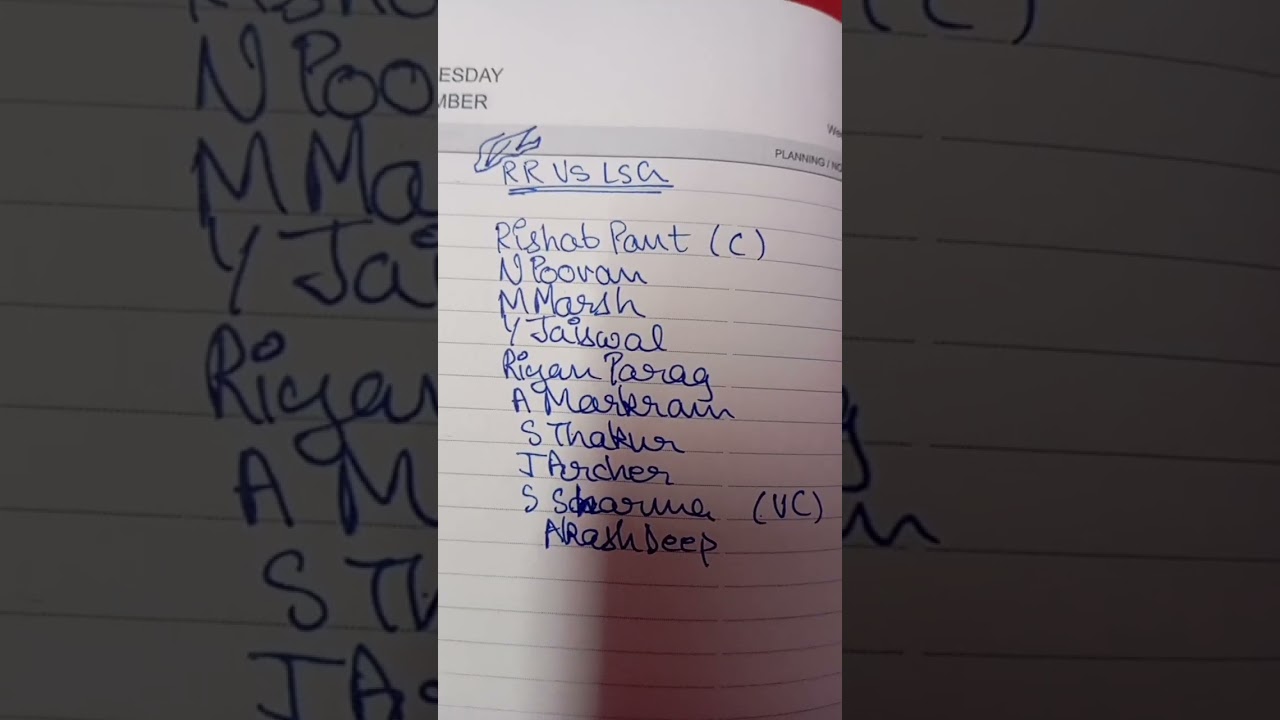 ESDAY
MBER
PLANNING / NO
RR Vs LSG
Rishab Pant (C)
N Pooran
M Marsh
Y Jaiswal
Riyan Parag
A Markram
S Thakur
J Archer
S Sharma (VC)
Akash Deep